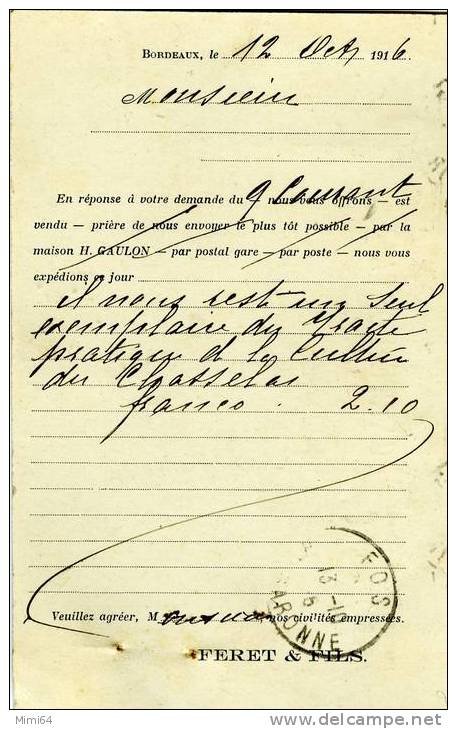 BORDEAUX, le 12 Oct 1916
Monsieur
En réponse à votre demande du 9 Courant nous vous offrons — est
vendu — prière de nous envoyer le plus tôt possible — par la
maison H. GAULON — par postal gare — par poste — nous vous
expédions ce jour
il nous reste un seul
exemplaire du Traité
pratique de la Culture
du Chasselas
franco . 2.10
FOS
13 -10
GARONNE
Veuillez agréer, M nos civilités empressées.
FERET & FILS.
Mimi64
http://www.delcampe.net